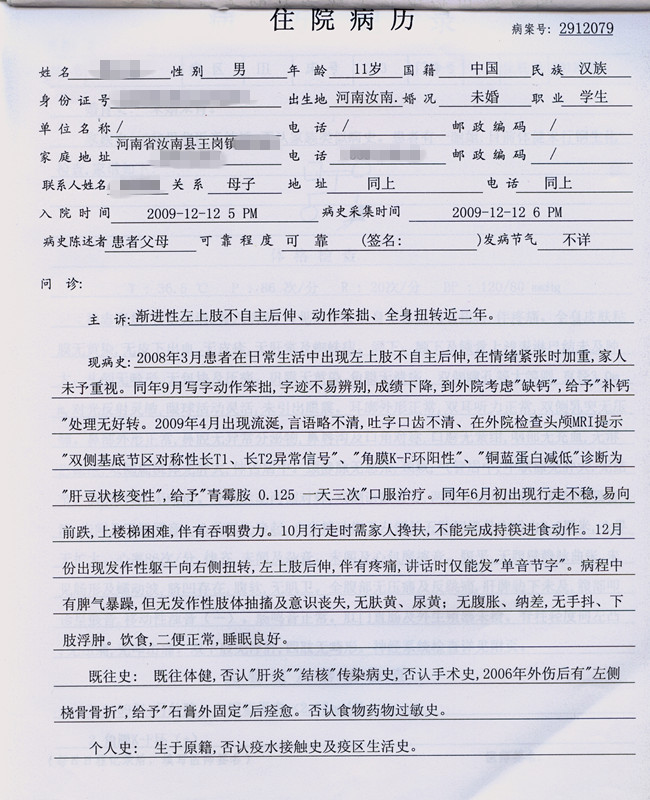 住院病历
病案号: 2912079
姓名 性别 男 年龄 11岁 国籍 中国 民族 汉族
身份证号 出生地 河南汝南. 婚况 未婚 职业 学生
单位名称 / 电话 / 邮政编码 /
家庭地址 河南省汝南县王岗镇 电话 邮政编码 /
联系人姓名 关系 母子 地址 同上 电话 同上
入院时间 2009-12-12 5 PM 病史采集时间 2009-12-12 6 PM
病史陈述者 患者父母 可靠程度 可靠 (签名: )发病节气 不详
问诊:
主诉:渐进性左上肢不自主后伸、动作笨拙、全身扭转近二年。
现病史:2008年3月患者在日常生活中出现左上肢不自主后伸,在情绪紧张时加重,家人
未予重视。同年9月写字动作笨拙,字迹不易辨别,成绩下降,到外院考虑"缺钙",给予"补钙
"处理无好转。2009年4月出现流涎,言语略不清,吐字口齿不清、在外院检查头颅MRI提示
"双侧基底节区对称性长T1、长T2异常信号"、"角膜K-F环阳性"、"铜蓝蛋白减低"诊断为
"肝豆状核变性",给予"青霉胺 0.125 一天三次"口服治疗。同年6月初出现行走不稳,易向
前跌,上楼梯困难,伴有吞咽费力。10月行走时需家人搀扶,不能完成持筷进食动作。12月
份出现发作性躯干向右侧扭转,左上肢后伸,伴有疼痛,讲话时仅能发"单音节字"。病程中
有脾气暴躁,但无发作性肢体抽搐及意识丧失,无肤黄、尿黄;无腹胀、纳差,无手抖、下
肢浮肿。饮食,二便正常,睡眠良好。
既往史: 既往体健,否认"肝炎""结核"传染病史,否认手术史,2006年外伤后有"左侧
桡骨骨折",给予"石膏外固定"后痊愈。否认食物药物过敏史。
个人史: 生于原籍,否认疫水接触史及疫区生活史。